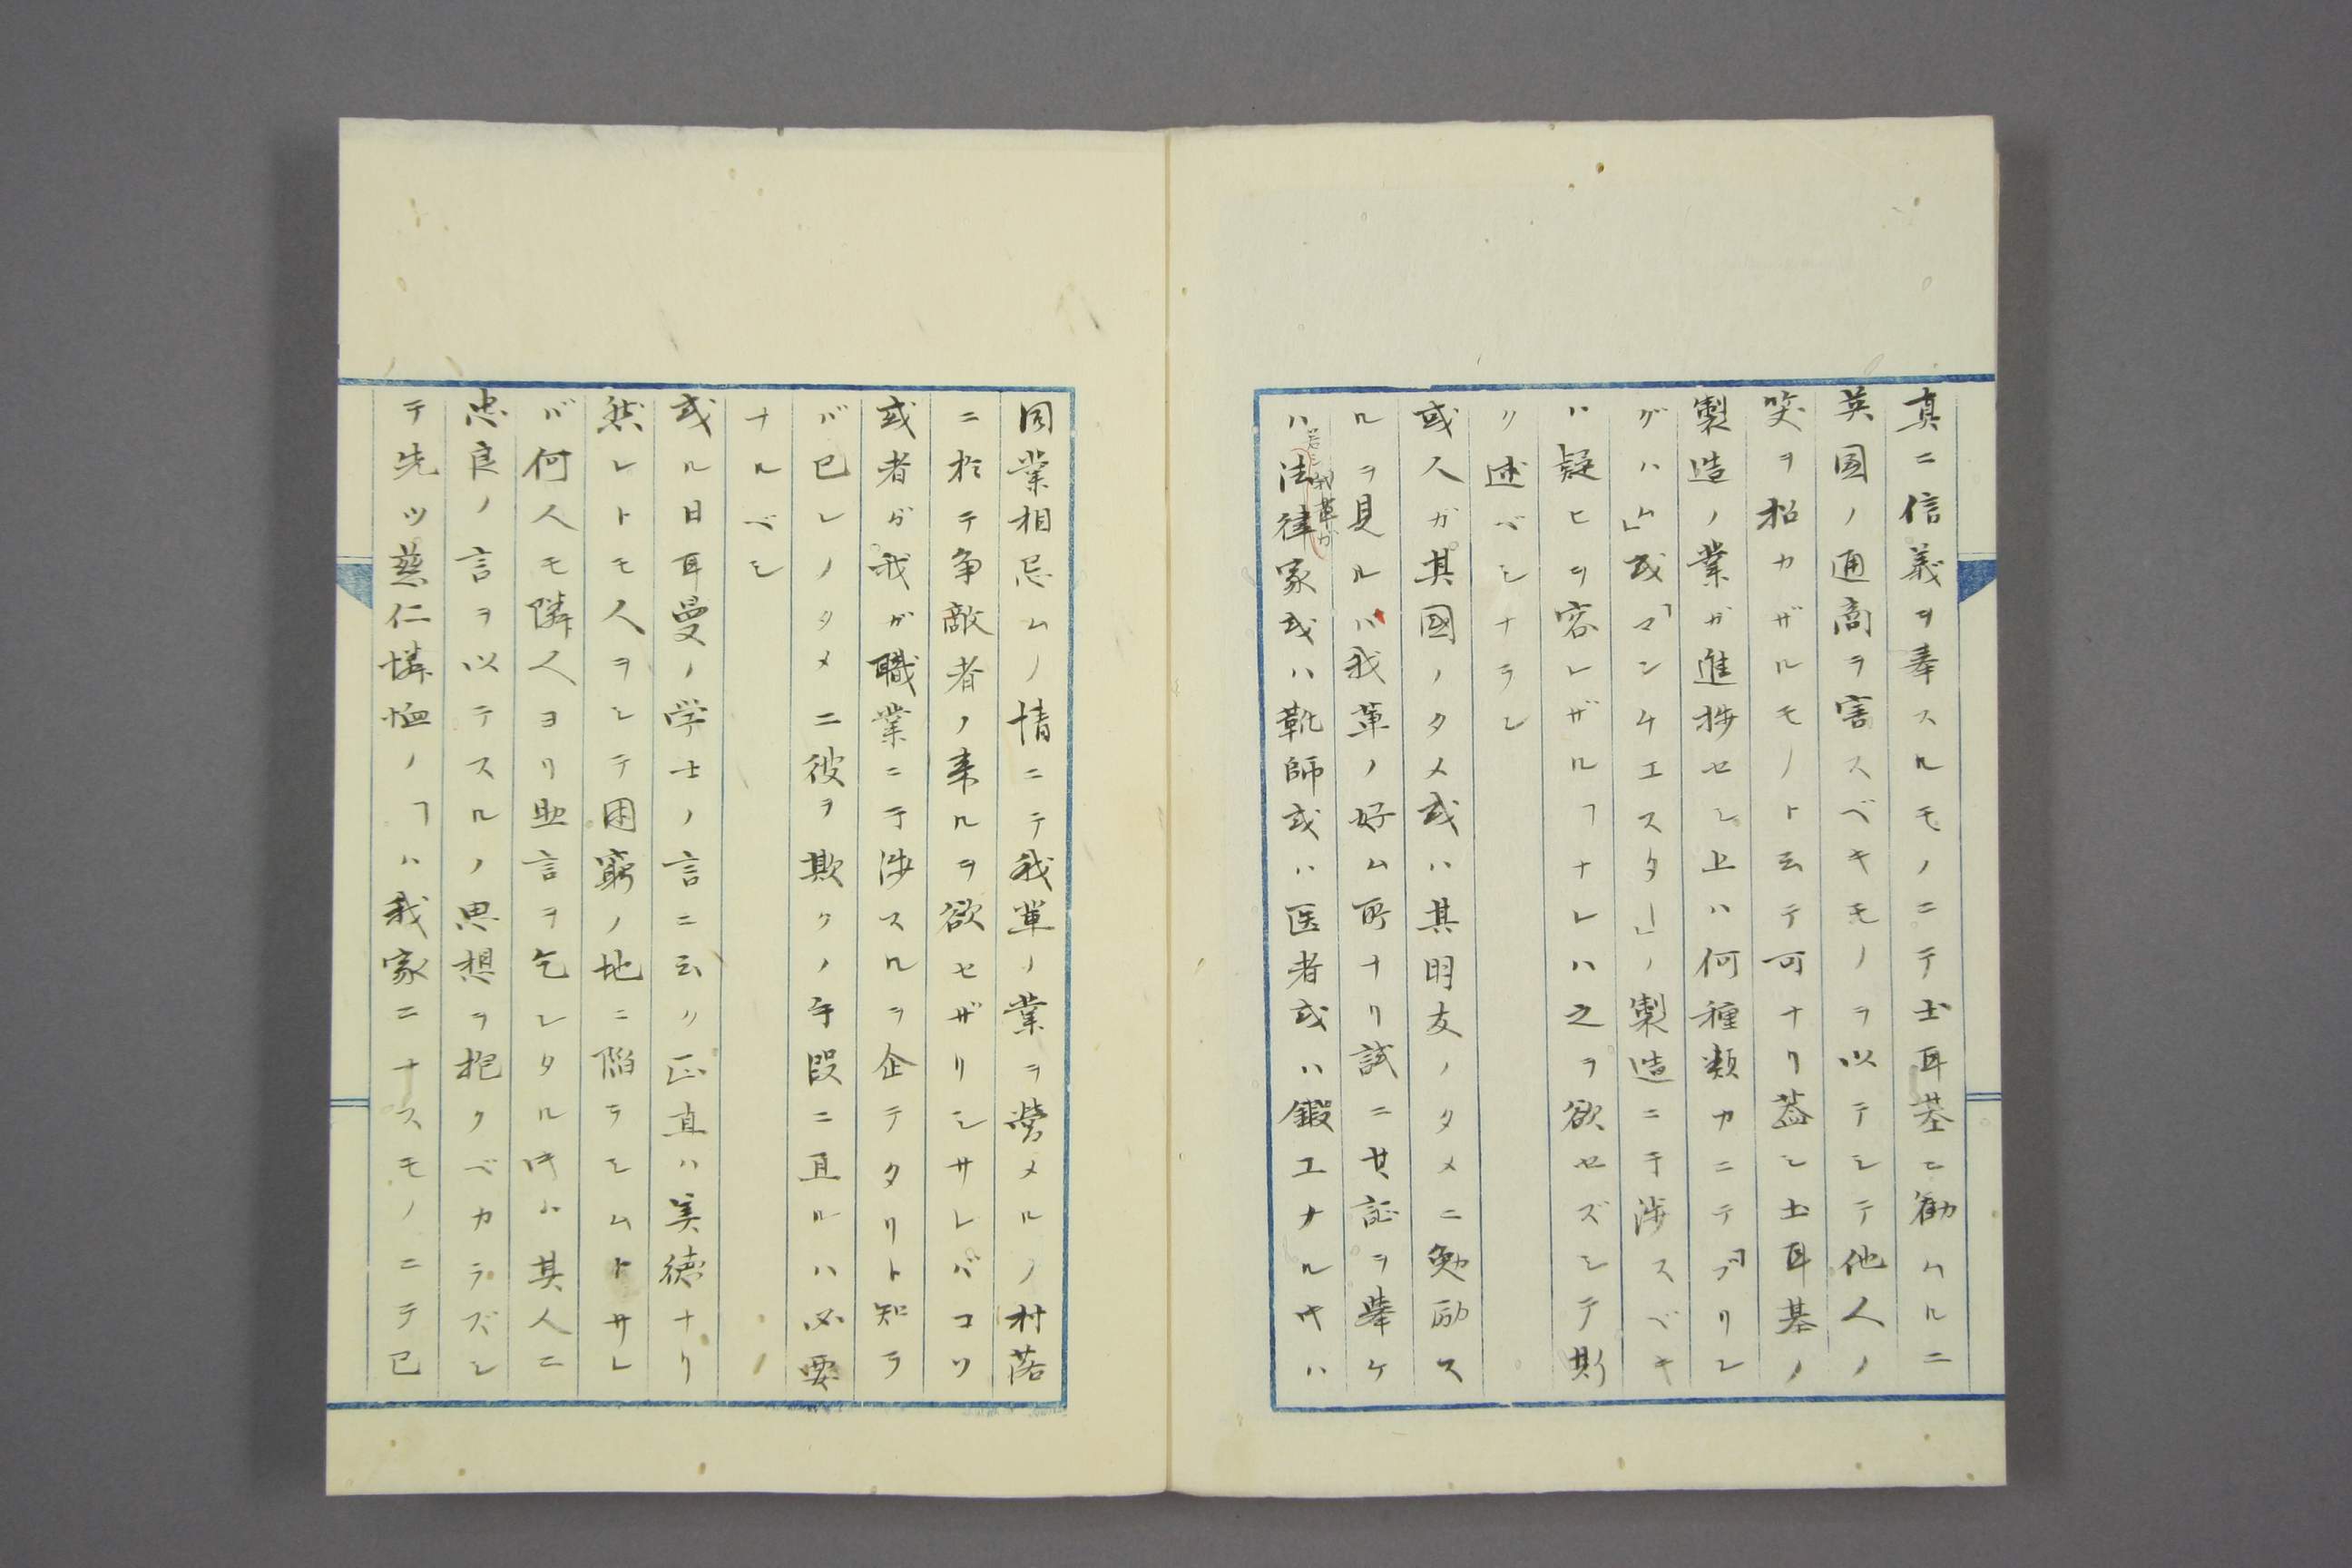 真ニ信義ヲ奉スルモノニテ土耳基ニ勧ムルニ
英国ノ通商ヲ害スベキモノヲ以テシテ他人ノ
笑ヲ招カザルモノト云テ可ナリ蓋シ土耳基ノ
製造ノ業ガ進捗セシ上ハ何種類カニテ「ブリレ
グハム」或「マンケエスター」ノ製造ニ干渉スベキ
ハ疑ヒヲ容レザルヿナレハ之ヲ欲セズシテ斯
ク述ベシナラン
或人ガ其國ノタメ或ハ其朋友ノタメニ勉励ス
ルヲ見ルハ我輩ノ好ム所ナリ試ニ其証ヲ挙ケ
若シ我輩ガ
ハ法律家或ハ靴師或ハ医者或ハ鍛工ナル时ハ
同業相忌ムノ情ニテ我輩ノ業ヲ営メルノ村落
ニ於テ争敵者ノ来ルヲ欲セザリシサレバコソ
或者ガ我ガ職業ニ干渉スルヲ企テタリト知ラ
バ已レノタメニ彼ヲ欺クノ手段ニ直ルハ必要
ナルベシ
或ル日耳曼ノ学士ノ言ニ云ク正直ハ美徳ナリ
然レトモ人ヲシテ困窮ノ地ニ陥ラシムトサレ
バ何人モ隣人ヨリ助言ヲ乞レタル时ハ其人ニ
忠良ノ言ヲ以テスルノ思想ヲ抱クベカラズシ
テ先ツ慈仁憐恤ノヿハ我家ニナスモノニテ已